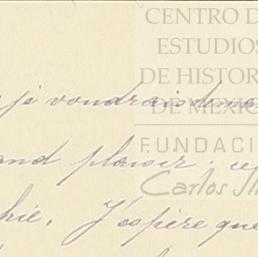 CENTRO D
ESTUDIOS
DE HISTOR
DE MÉXIC
FUNDACI
Carlos Sl
je voudrais
and plaisir
hie. J'espère que